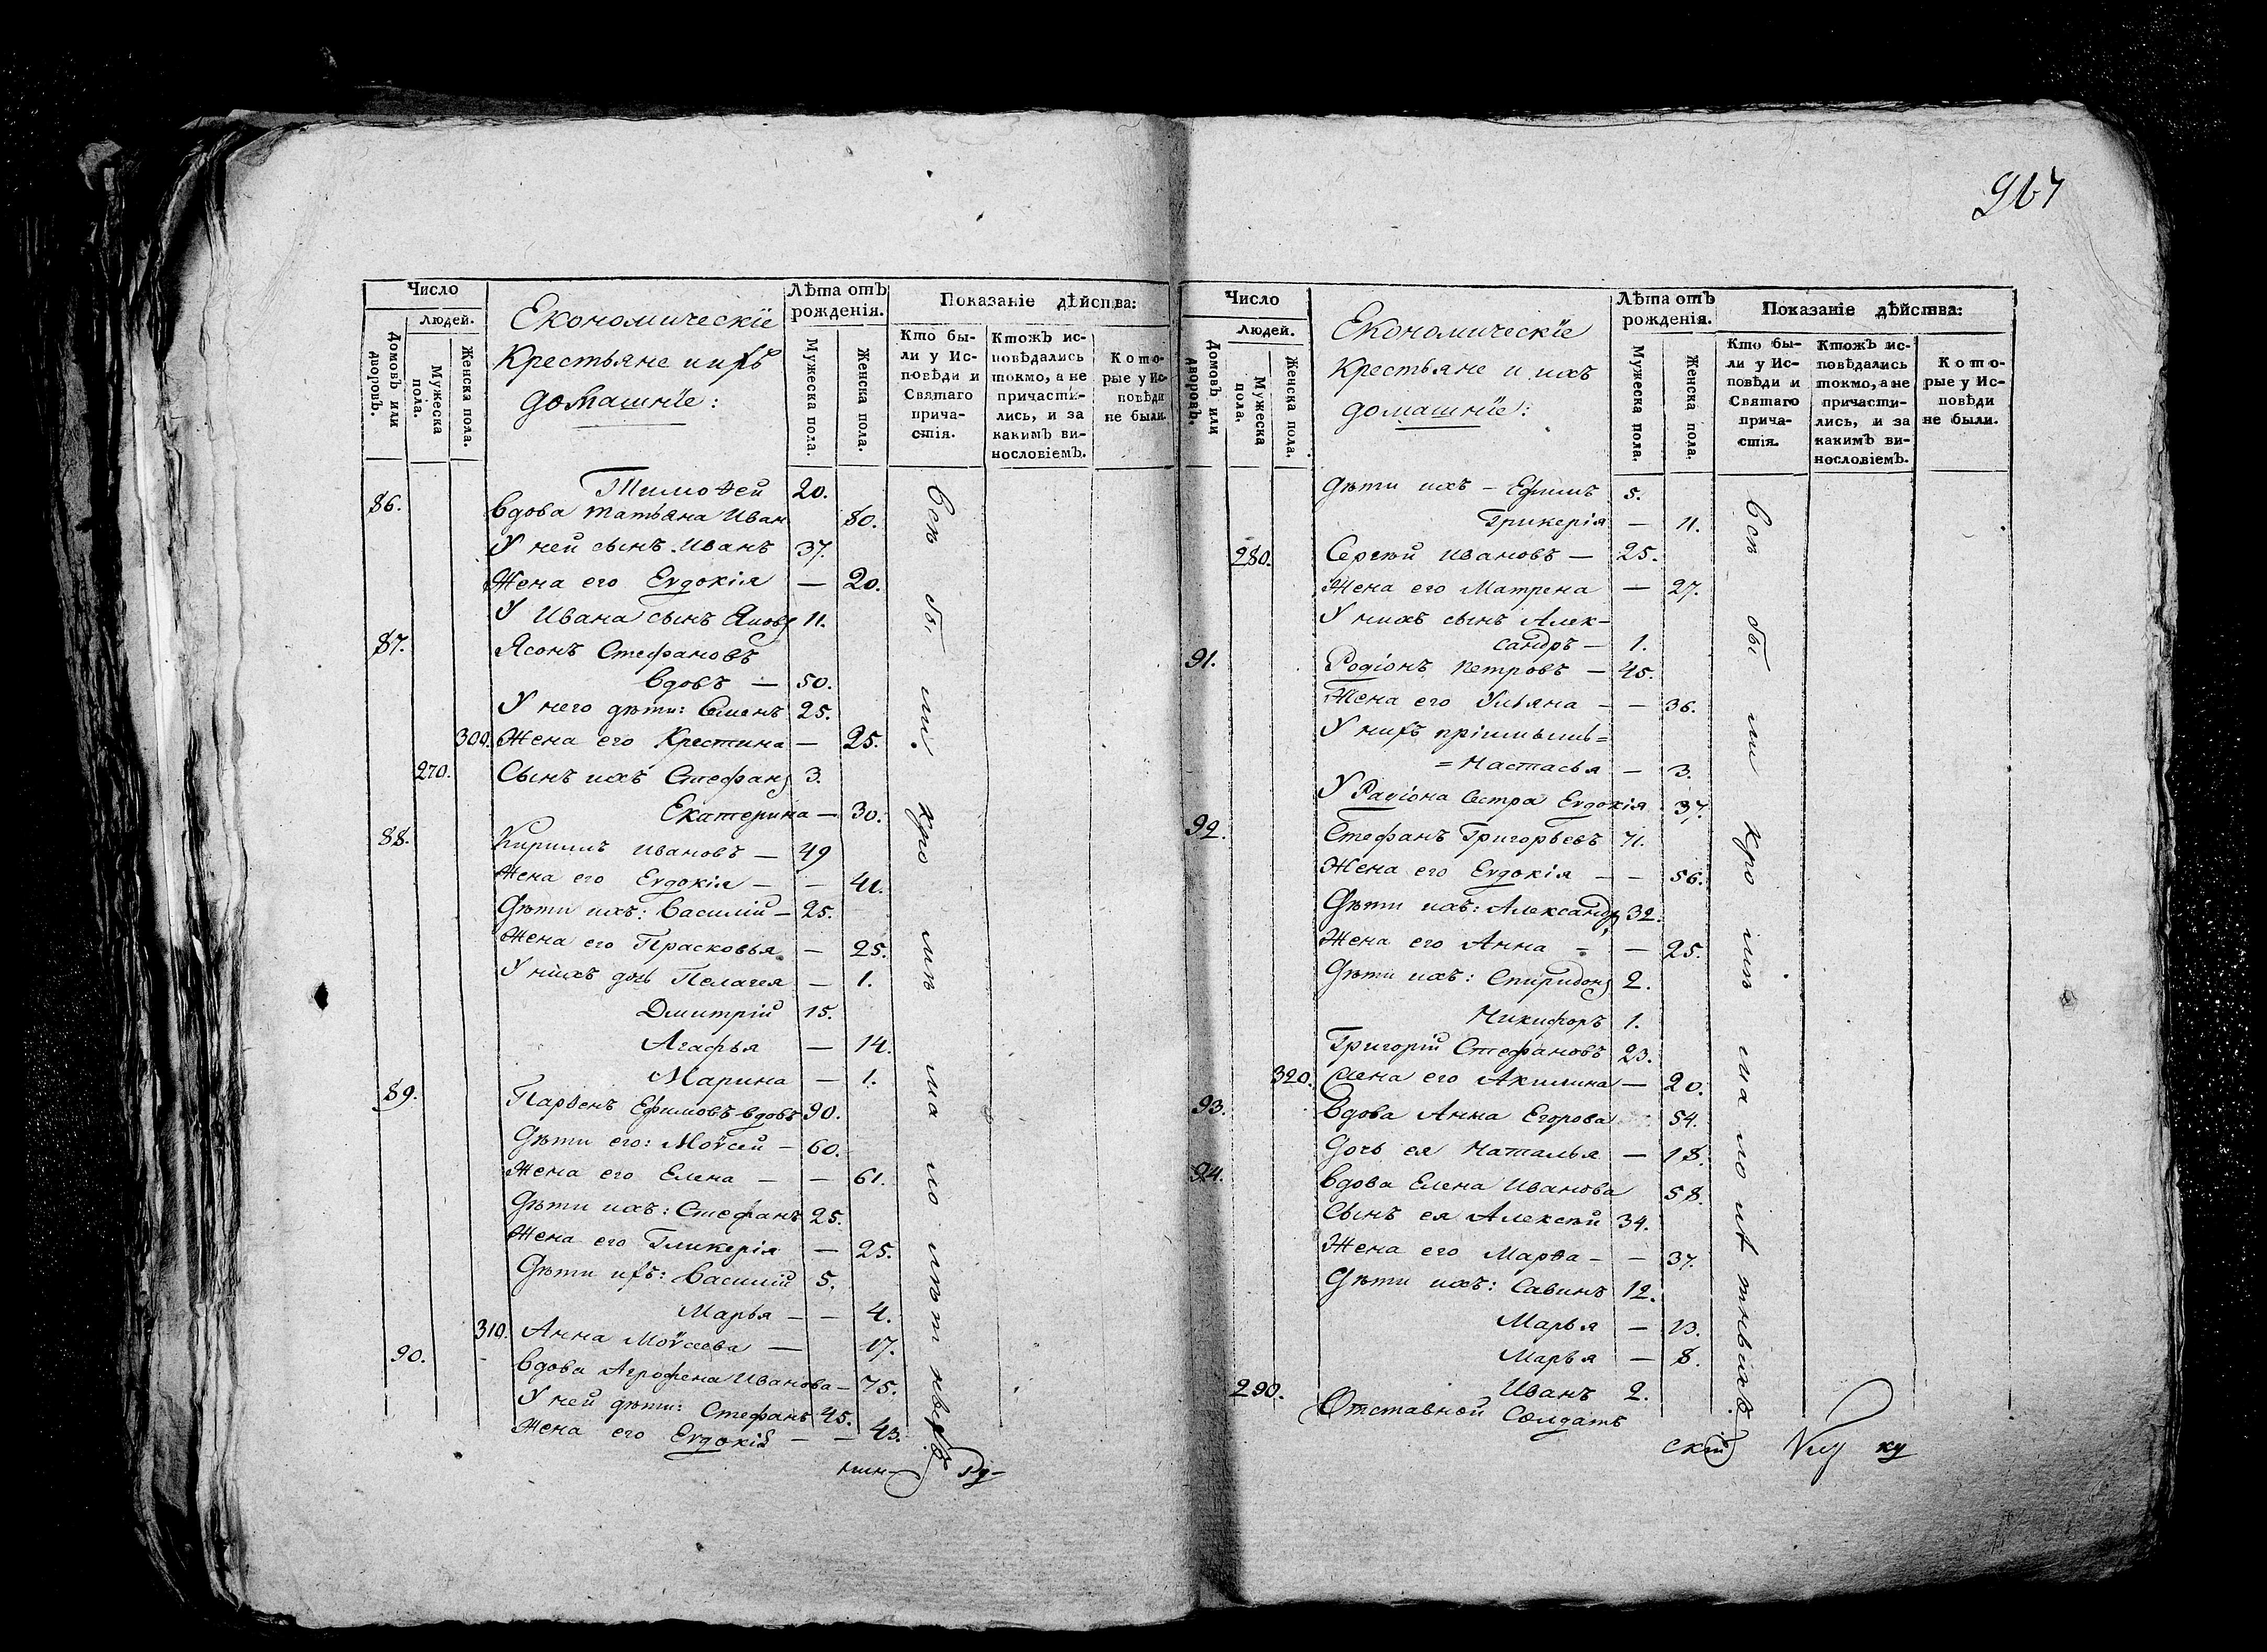 967
Число
людей.
Домовъ или дворовъ.
Мужеска пола.
Женска пола.
Економическїе
Крестьяне и ихъ
домашнїе:
Лѣта отъ рожденія.
Мужеска пола.
Женска пола.
Показаніе дѣйства:
Кто бы-
ли у Ис-
повѣди и
Святаго
прича-
стія.
Ктожъ ис-
повѣдались
токмо, а не
причасти-
лись, и за
какимъ ви-
нословіемъ.
Кото-
рые у Ис-
повѣди
не были.
Тимоѳей 20.
86. Вдова Татьяна Иван 80.
У ней сынъ Иванъ 37.
Жена его Евдокія — 20.
У Ивана сынъ 11.
87. Ясонъ Стефановъ
вдовъ — 50.
У него дѣти: Семенъ 25.
300. Жена его Крестина — 25.
270. Сынъ ихъ Стефанъ 3.
Екатерина — 30.
88. Кирилъ Ивановъ — 49
Жена его Евдокія — — 41.
Дѣти ихъ: Василій — 25.
Жена его Прасковья — 25.
У нихъ дочь Пелагея — 1.
Дмитрій 15.
Агафья — 14.
Марина — 1.
89. Парѳенъ Ефимовъ вдовъ 90.
Дѣти его: Моѵсей — 60.
Жена его Елена — — 61.
Дѣти ихъ: Стефанъ 25.
Жена его Гликерія — 25.
Дѣти ихъ: Василій 5.
Марья — — 4.
310. Анна Моѵсеева — 17.
90. Вдова Агрофена Иванова — 75.
У ней дѣти: Стефанъ 45.
Жена его Евдокія — — 43.
Всѣ бы ли. кро мѣ ма ло лѣт
Число
людей.
Домовъ или дворовъ.
Мужеска пола.
Женска пола.
Економическїе
Крестьяне и ихъ
домашнїе:
Лѣта отъ рожденія.
Мужеска пола.
Женска пола.
Показаніе дѣйства:
Кто бы-
ли у Ис-
повѣди и
Святаго
прича-
стія.
Ктожъ ис-
повѣдались
токмо, а не
причасти-
лись, и за
какимъ ви-
нословіемъ.
Кото-
рые у Ис-
повѣди
не были.
Дѣти ихъ — Ефимъ 5.
Грикерія — 11.
280. Сергѣй Ивановъ — 25.
Жена его Матрена — 27.
У нихъ сынъ Алек-
сандръ — 1.
91. Родіонъ Петровъ — 45.
Жена его Ульяна — — 36.
У нихъ пріимышъ=
=Настасья — 3.
У Радіона сестра Евдокія 37.
92. Стефанъ Григорьевъ 71.
Жена его Евдокія — — 56.
Дѣти ихъ: Александръ 32.
Жена его Анна — — 25.
Дѣти ихъ: Спиридонъ 2.
Никифоръ 1.
Григорій Стефановъ 23.
320. Жена его Акилина — 20.
93. Вдова Анна Егорова 54.
Дочь ея Наталья — 18.
94. Вдова Елена Иванова 58.
Сынъ ея Алексѣй 34.
Жена его Марѳа — — 37.
Дѣти ихъ: Савинъ 12.
Марья — 13.
Марья — 8.
290. Иванъ 2.
Отставной Солдатъ
Всѣ бы ли кро мѣ ма ло лѣ тныхъ